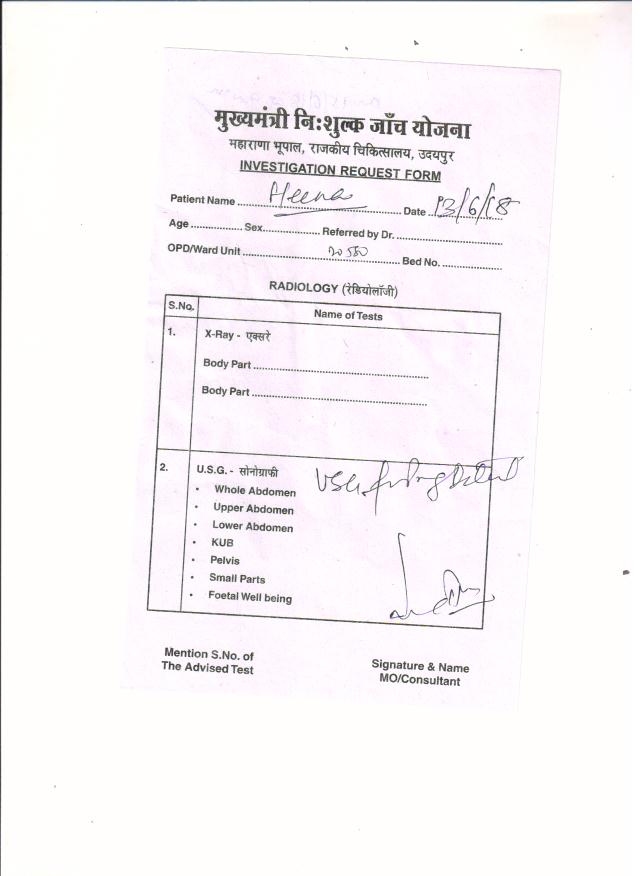 मुख्यमंत्री नि:शुल्क जाँच योजना
महाराणा भूपाल, राजकीय चिकित्सालय, उदयपुर
INVESTIGATION REQUEST FORM
Patient Name ........ Heena ........ Date ..13/6/18
Age .................. Sex.................. Referred by Dr. ..................................
OPD/Ward Unit .................................. Bed No. ...................
RADIOLOGY (रेडियोलॉजी)
S.No. Name of Tests
1. X-Ray - एक्सरे
Body Part ............................................................
Body Part ............................................................
2. U.S.G. - सोनोग्राफी
• Whole Abdomen
• Upper Abdomen
• Lower Abdomen
• KUB
• Pelvis
• Small Parts
• Foetal Well being
USG
Mention S.No. of
The Advised Test
Signature & Name
MO/Consultant